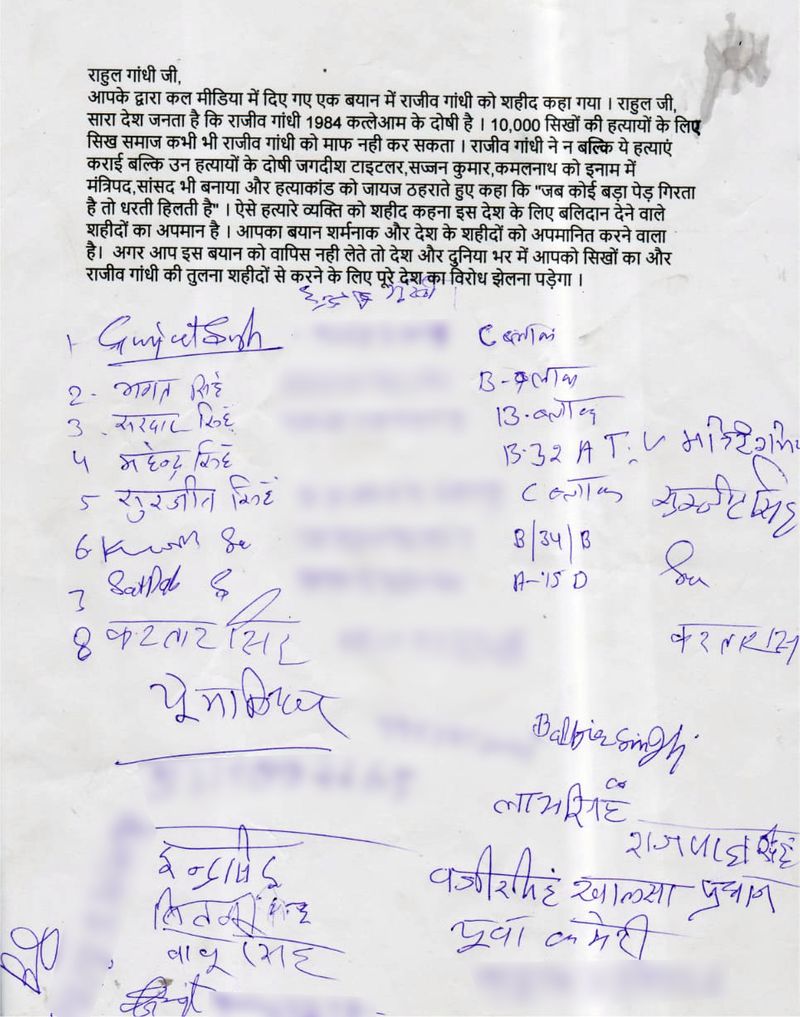 राहुल गांधी जी,
आपके द्वारा कल मीडिया में दिए गए एक बयान में राजीव गांधी को शहीद कहा गया । राहुल जी,
सारा देश जनता है कि राजीव गांधी 1984 कत्लेआम के दोषी है । 10,000 सिखों की हत्यायों के लिए
सिख समाज कभी भी राजीव गांधी को माफ नही कर सकता । राजीव गांधी ने न बल्कि ये हत्याएं
कराई बल्कि उन हत्यायों के दोषी जगदीश टाइटलर,सज्जन कुमार,कमलनाथ को इनाम में
मंत्रिपद,सांसद भी बनाया और हत्याकांड को जायज ठहराते हुए कहा कि "जब कोई बड़ा पेड़ गिरता
है तो धरती हिलती है" । ऐसे हत्यारे व्यक्ति को शहीद कहना इस देश के लिए बलिदान देने वाले
शहीदों का अपमान है । आपका बयान शर्मनाक और देश के शहीदों को अपमानित करने वाला
है। अगर आप इस बयान को वापिस नही लेते तो देश और दुनिया भर में आपको सिखों का और
राजीव गांधी की तुलना शहीदों से करने के लिए पूरे देश का विरोध झेलना पड़ेगा ।
1 Gurjeet Singh C ब्लाक
2- भगत सिंह B-ब्लाक
3 सरदार सिंह B-ब्लाक
4 महेन्द्र सिंह B-32 A
5 सुरजीत सिंह C ब्लाक सुरजीत सिंह
6 B/34/B
7 A-15 D
8 करतार सिंह करतार सिंह
Balbir Singh
लाभ सिंह
राजपाल सिंह
वजीर सिंह खालसा प्रधान
बाबू सिंह